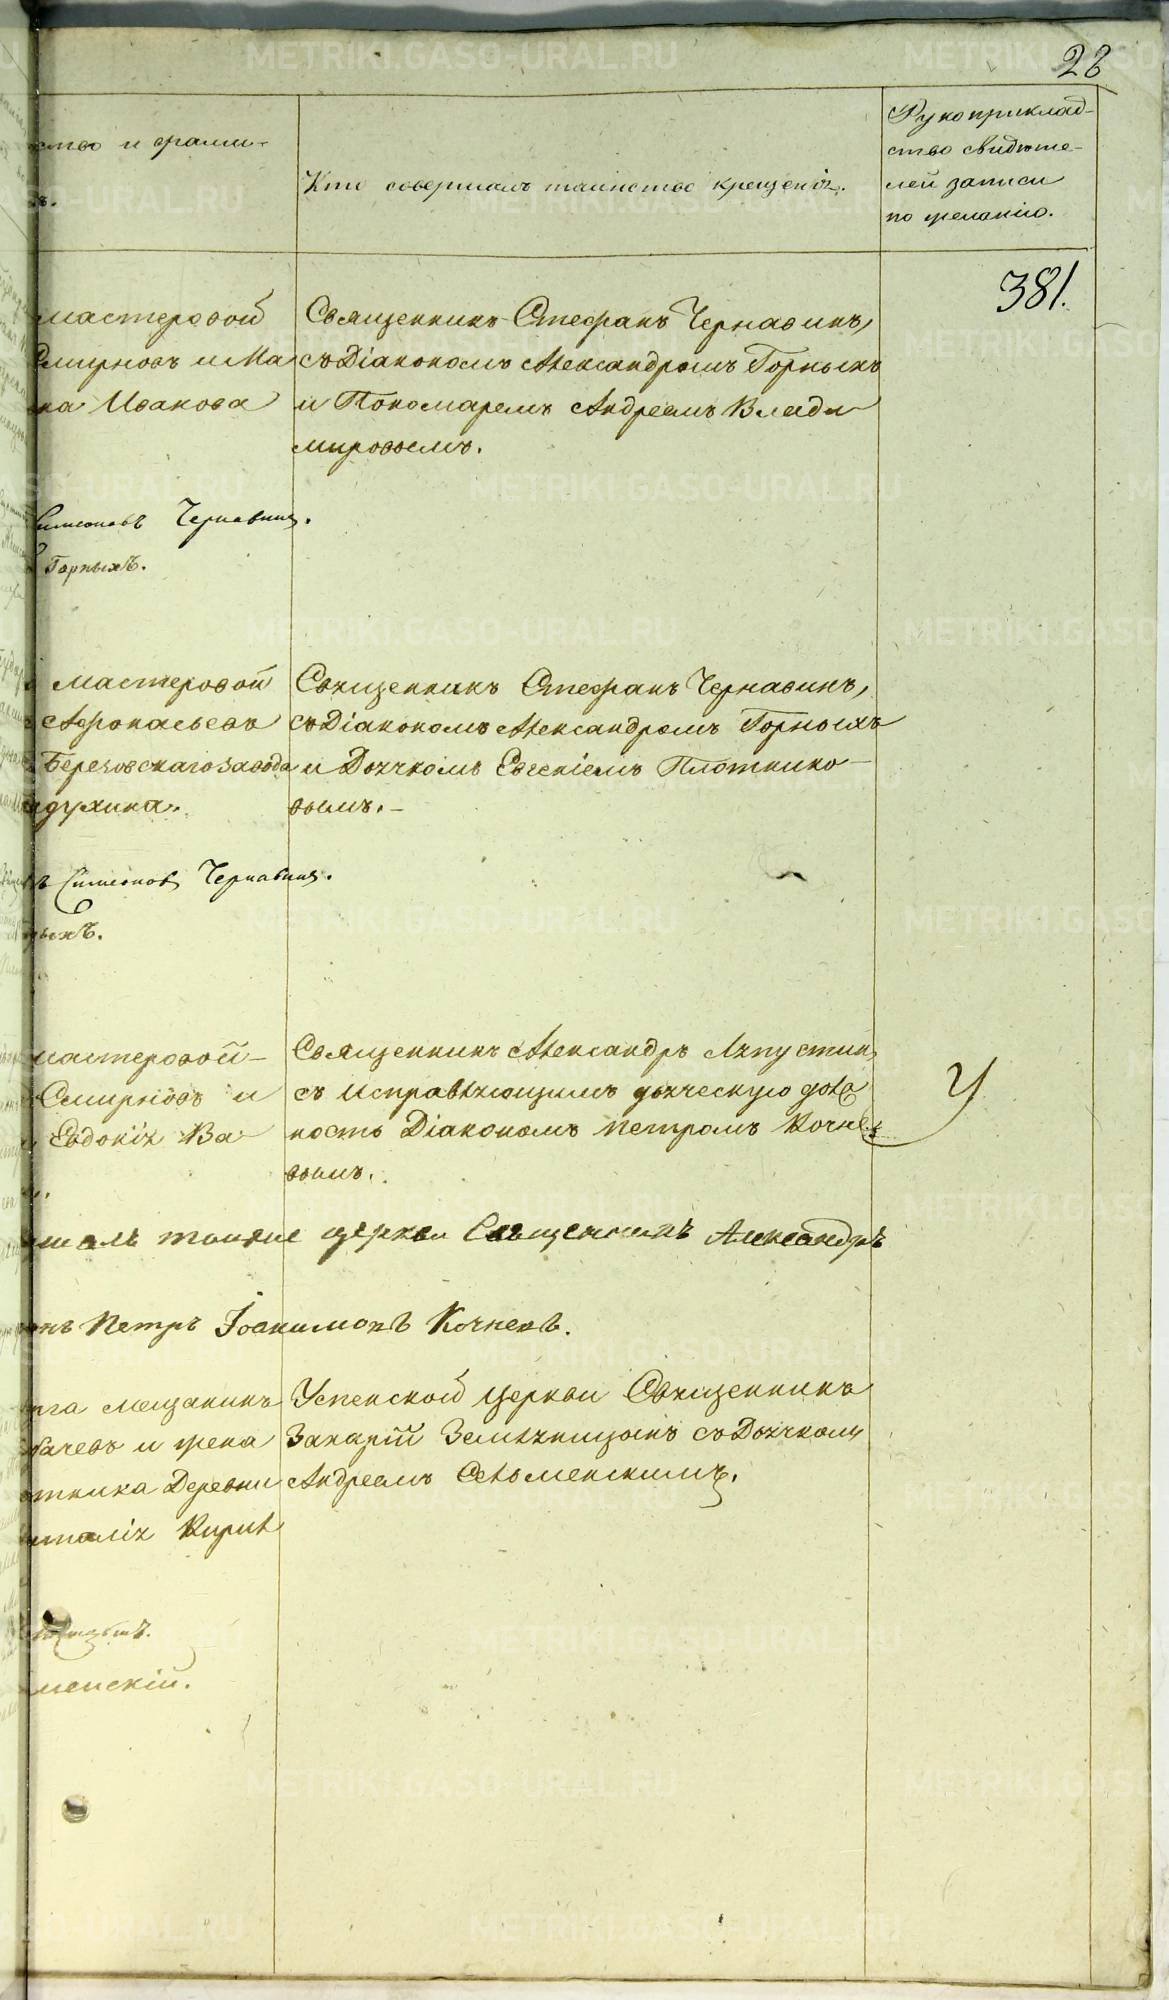 28
ство и фами-
Кто совершалъ таинство крещенія.
Рукоприклад-
ство свидѣте-
лей записи
по желанію.
381.
мастеровой
Смирновъ и Ма
на Иванова
Священникъ Стефанъ Чернавинъ,
съ Діакономъ Александромъ Горныхъ
и Пономаремъ Андреемъ Влади
мировымъ.
Симеоновъ Чернавинъ.
Горныхъ.
мастеровой
Афонасьевъ
Березовскаго завода
духина.
Священникъ Стефанъ Чернавинъ,
съ Діакономъ Александромъ Горныхъ
и Дьячкомъ Евгеніемъ Плотнико
вымъ.-
ъ Симеоновъ Чернавинъ.
ныхъ.
мастеровой-
Смирновъ и
Евдокія Ва
Священникъ Александръ Ляпустин
съ Исправляющимъ дьяческую долж
ность Діакономъ Петромъ Кочне
вымъ.
У
шалъ тояже церкви Священникъ Александръ
онъ Петръ Іоакимовъ Кочневъ.
рга мещанинъ
бачевъ и жена
отника Деревни
талія Кирил
Успенской церкви Священникъ
Захарій Земляницынъ съ Дьячкомъ
Андреемъ Сельменскимъ.
менскій.
METRIKI.GASO-URAL.RU